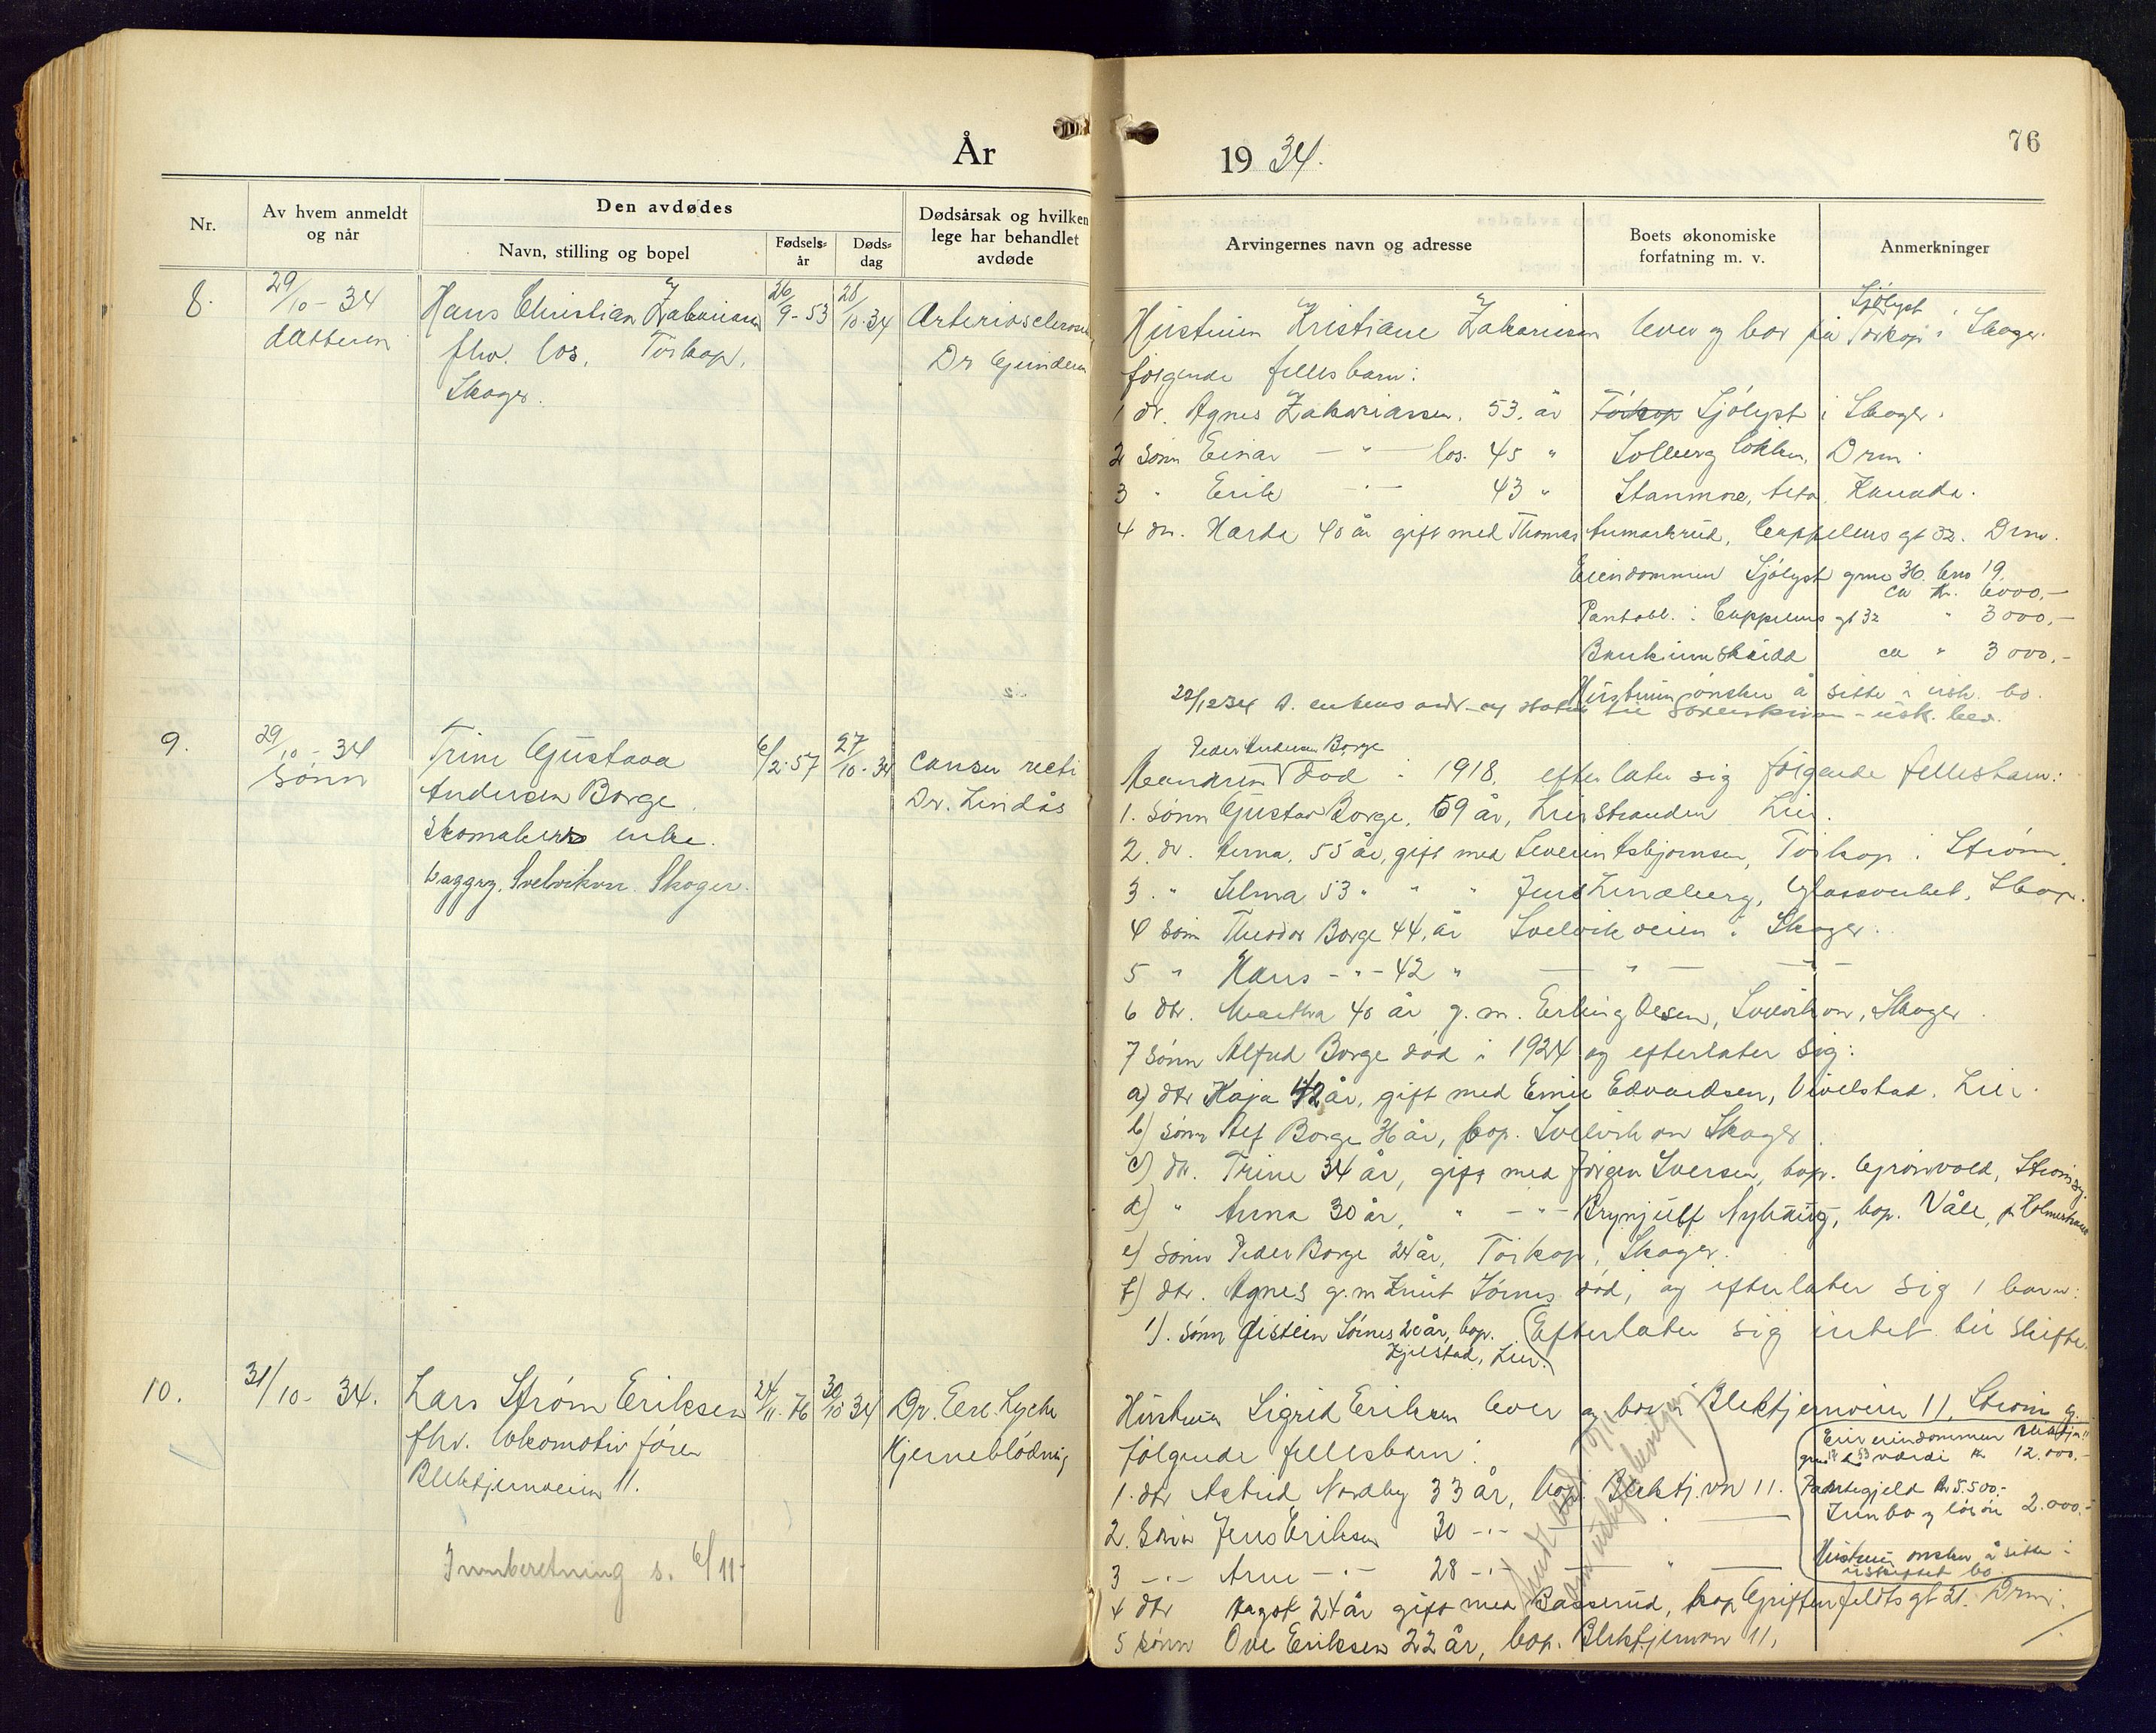 År
19 34.
76
Nr.
Av hvem anmeldt og når
Den avdødes
Navn, stilling og bopel
Fødsels-år
Døds-dag
Dødsårsak og hvilken lege har behandlet avdøde
Arvingernes navn og adresse
Boets økonomiske forfatning m. v.
Anmerkninger
8.
29/10 - 34
datteren
Hans Christian Zakariasen
fhv. los, Torkop,
Skoger.
26/9 - 53
28/10 34
Arteriosclerose
Dr Gundersen
Hustruen Kristiane Zakariasen lever og bor på Sjølyst Torkop i Skoger.
følgende fellesbarn:
1 dr. Agnes Zakariassen. 53. år Torkop Sjølyst i Skoger.
2 sønn Einar — " — los. 45 " Solberg løkken, Drm.
3 " Erik — " — 43 " Stanmore, Alta, Kanada.
4 dr. Harda 40 år gift med Thomas Aumarkrud, Cappelens gt 32. Drm.
Eiendommen Sjølyst grno 36. bno 19.
ca kr. 6000,-
Pantobl. i Cappelens gt 32 " 3000,-
Bankinnskudd ca " 3000,-
Hustruen ønsker å sitte i usk. bo.
22/12 34
9.
29/10 - 34
sønn
Trine Gustava
Andersen Borge
Skomakers enke.
Svelvikvn. Skoger.
6/2 - 57
27/10 - 34
Cancer recti
Dr. Lindås
Peder Andersen Borge
Mannen død i 1918. efterlater sig følgende fellesbarn:
1. sønn Gustav Borge, 59 år, Lierstranden Lier.
2. dr. Anna, 55 år, gift med Severin Asbjørnsen, Torkop i Strøm.
3. " Selma 53 " " " Jens Lindberg, Glassverket, Skoger.
4 sønn Theodor Borge 44, år Svelvikveien i Skoger.
5 " Hans - " - 42 " — " — — " —
6 dtr. Martha 40 år g. m. Erling Olsen, Svelvikvn, Skoger.
7 sønn Alfred Borge død i 1924 og efterlater sig:
a) dtr Kaja 42 år, gift med Emil Edvardsen, Vivelstad. Lier.
b) sønn Alf Borge 36 år, bop. Svelvikvn Skoger.
c) dtr. Trine 34 år, gift med Jørgen Iversen, bop. Grønvold, Strømsg.
d) " Anna 30 år, " - " - Brynjulf Nyhaug, bop. Våle, p. Holmestrand
e) sønn Peder Borge 24 år, Torkop, Skoger.
f) dtr. Agnes g. m Knut Sørnes død, og efterlater sig 1 barn:
1). sønn Øistein Sørnes 20 år, bop.
Gjilstad, Lier.
Efterlater sig intet til skifte.
10.
31/10 - 34.
Lars Strøm Eriksen
fhv. lokomotivfører
Blektjernveien 11.
24/11 - 76
30/10 34
Dr. Eil. Lyche
Hjerneblødning
Innberetning s. 6/11 -
Hustruen Sigrid Eriksen lever og bor i Blektjernveien 11, Strømsg.
følgende fellesbarn:
1. dtr Astrid Nordby 33 år, bop. Blektj.vn 11.
2. sønn Jens Eriksen 30 - " -
3 - " - Arne - " - 28 - " -
4 dtr Aagot 24 år gift med Basserud, bop Griffenfeldts gt 21. Drm.
5 sønn Ove Eriksen 22 år, bop. Blektjernvn 11.
Eier eiendommen Blektjn 11
verdi kr 12.000.-
Pantegjeld kr 5.500.-
Innbo og løsøre 2.000.-
Hustruen ønsker å sitte i
uskiftet bo.